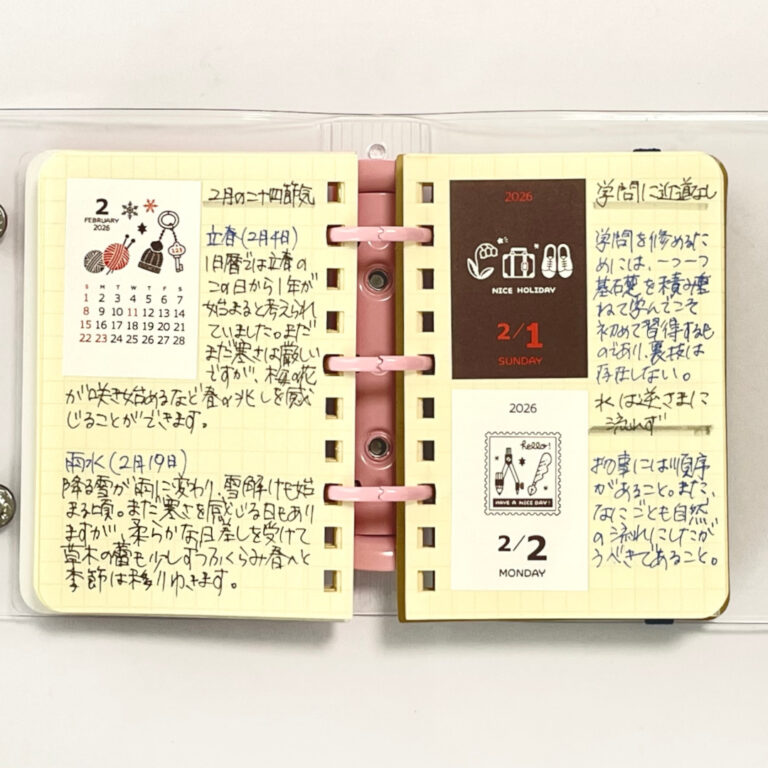 2
FEBRUARY
2026
S M T W T F S
1 2 3 4 5 6 7
8 9 10 11 12 13 14
15 16 17 18 19 20 21
22 23 24 25 26 27 28
2月の二十四節気
立春(2月4日)
旧暦では立春の
この日から1年が
始まると考えられ
ていました。まだ
まだ寒さは厳しい
ですが、梅の花
が咲き始めるなど春の兆しを感
じることができます。
雨水(2月19日)
降る雪が雨に変わり、雪解けも始
まる頃。まだ寒さを感じる日もあり
ますが、柔らかな日差しを受けて
草木の蕾も少しずつふくらみ春へと
季節は移りゆきます。
2026
NICE HOLIDAY
2/1
SUNDAY
学問に近道なし
学問を修めるた
めには、一つ一つ
基礎を積み重
ねて学んでこそ
初めて習得するも
のであり、裏技は
存在しない。
2026
hello!
HAVE A NICE DAY!
2/2
MONDAY
水は逆さまに
流れず
物事には順序
があること。また、
なにごとも自然
の流れにしたが
うべきであること。